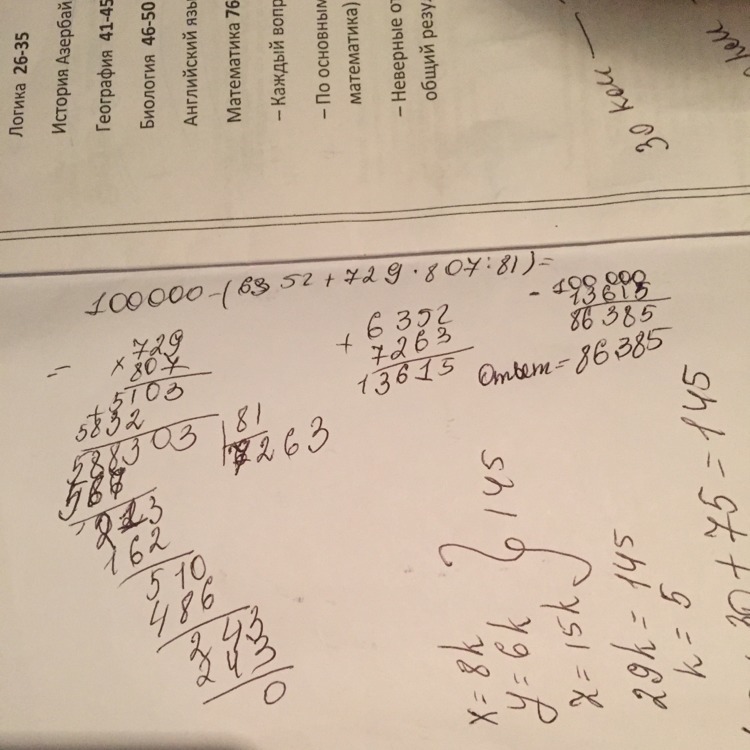 Логика 26-35
История Азербай
География 41-45
Биология 46-50
Английский язы
Математика 76
– Каждый вопр
– По основным
математика)
– Неверные от
общий резу
30 кош —
100000-(6352+729·807:81)=
=
729
×807
+5103
5832
588303 | 81
7263
567
213
162
510
486
243
243
0
6352
+
7263
13615
- 100 000
13615
86385
Ответ = 86385
x=8k
y=6k
z=15k
} 145
29k=145
k=5
30+75=145